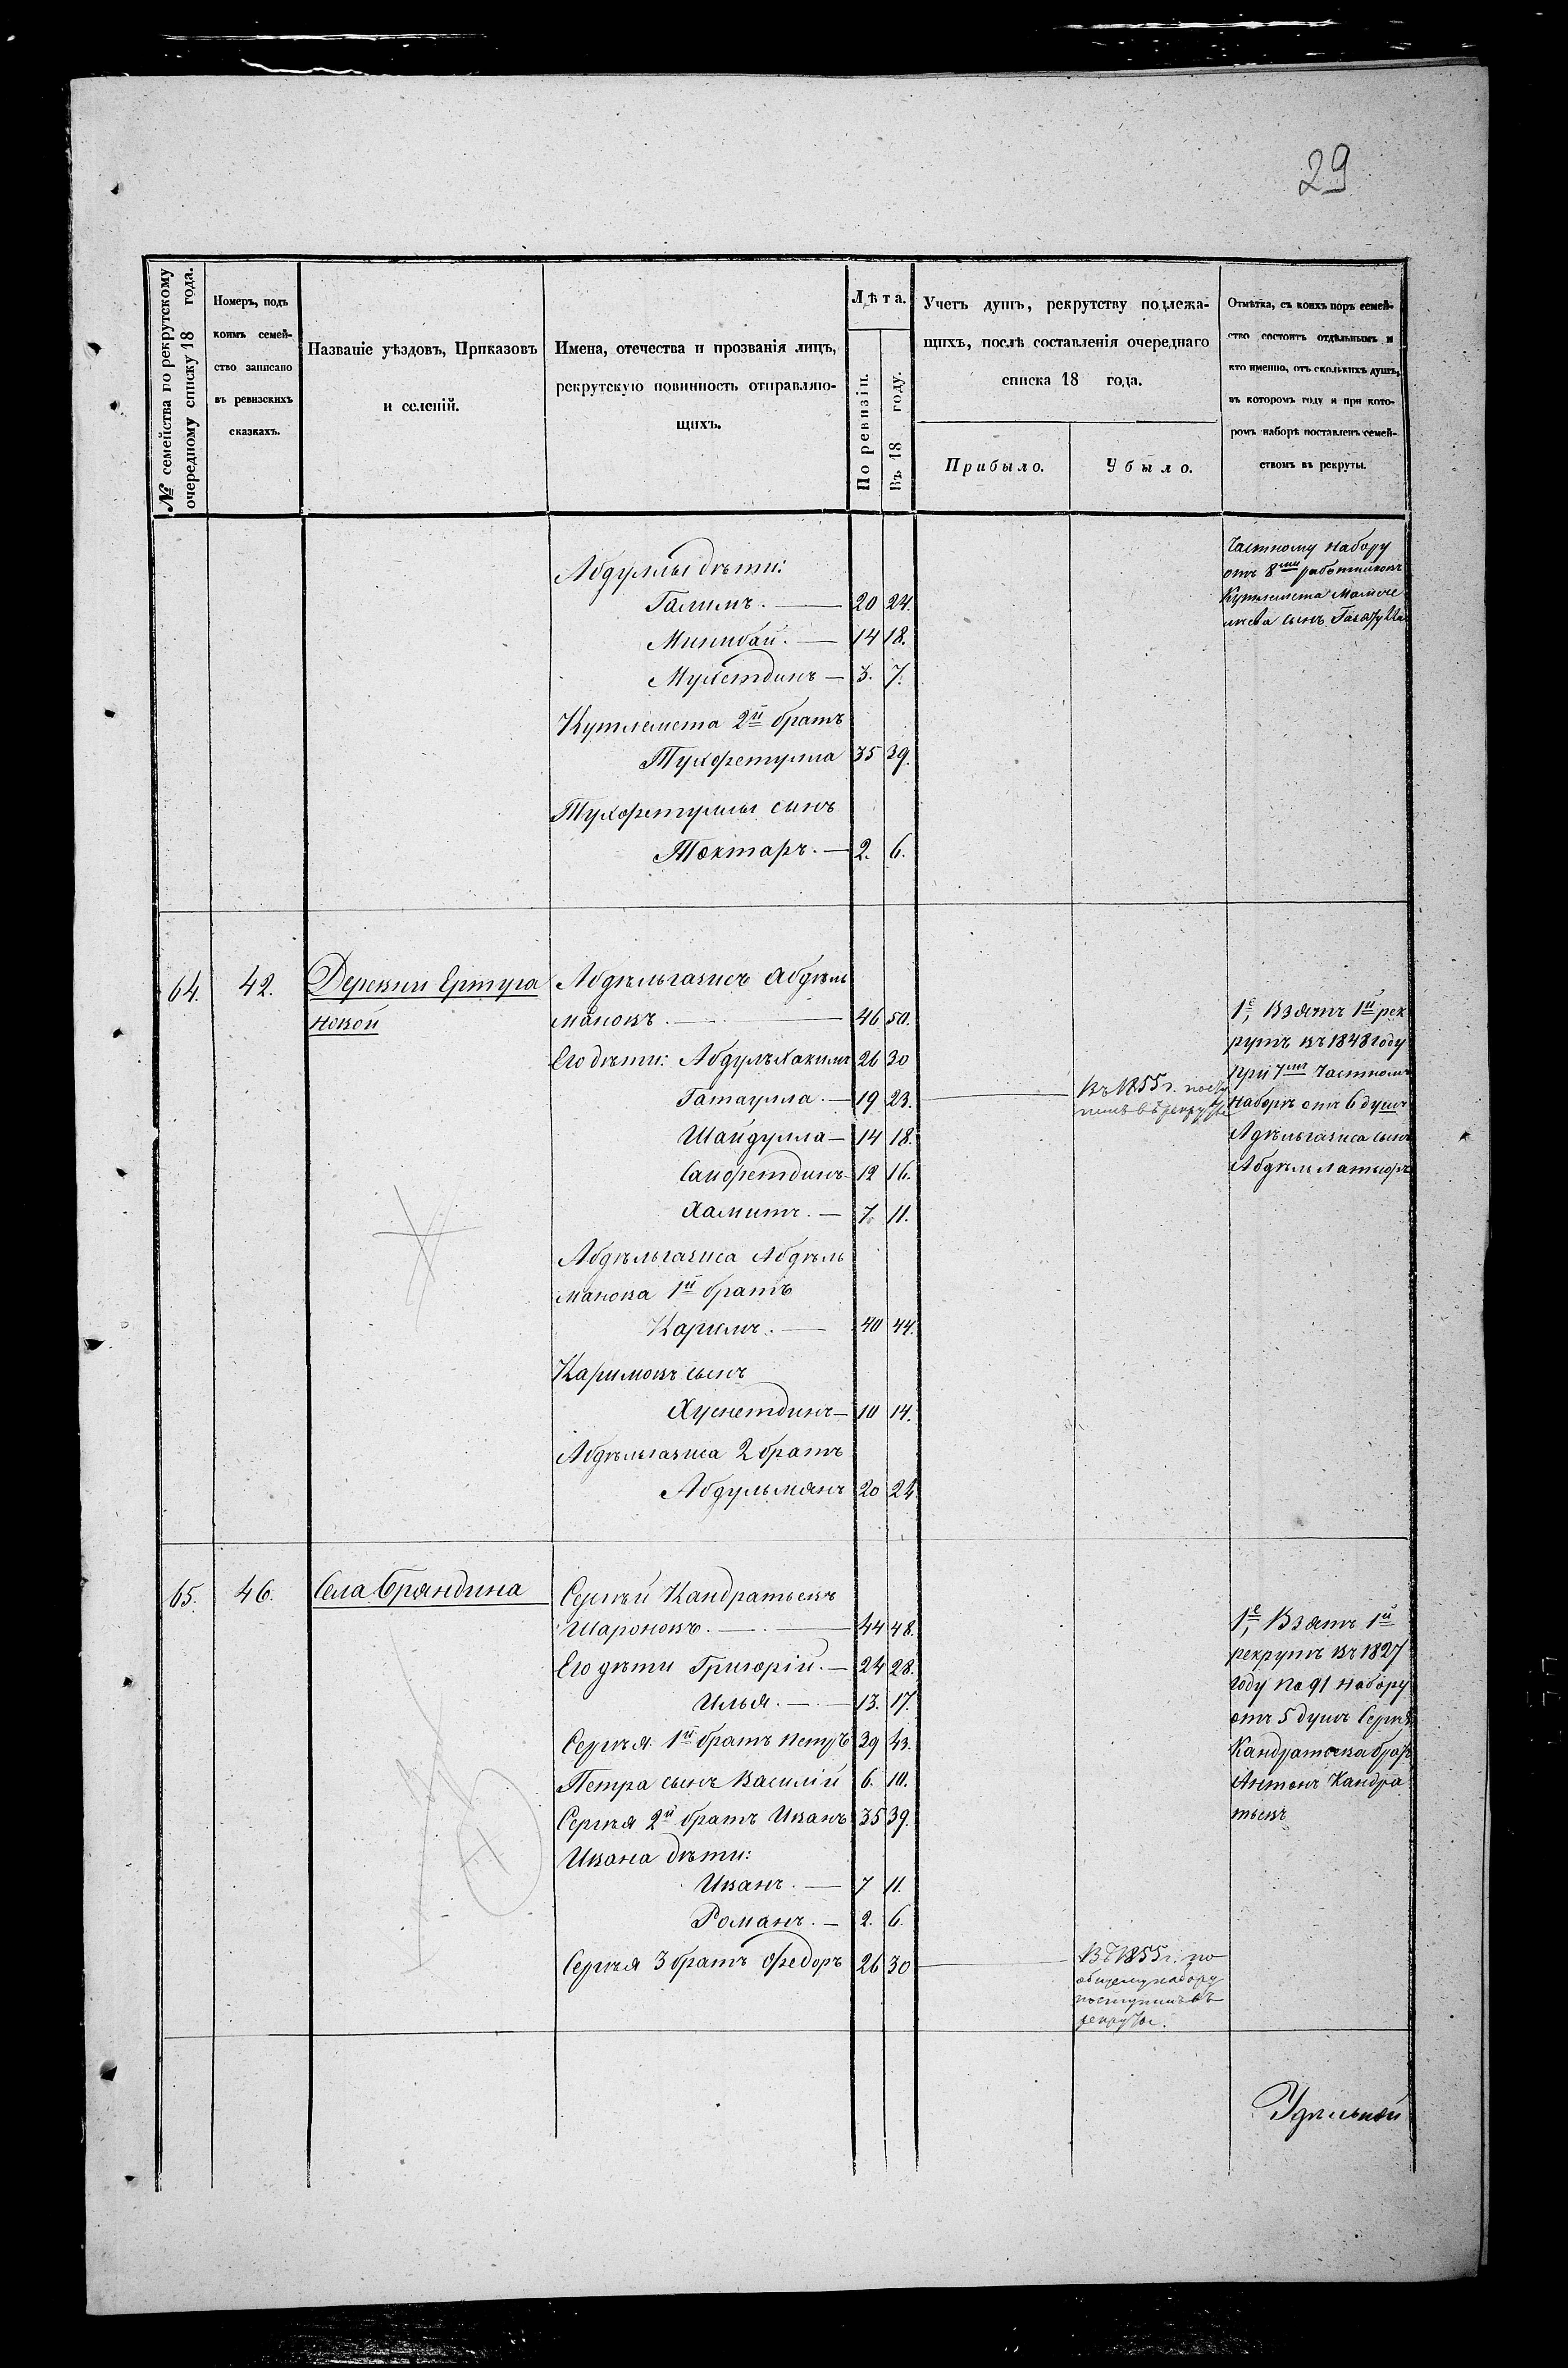 29
№ семейства по рекрутскому
очередному списку 18 года.
Номеръ, подъ
коимъ семей-
ство записано
въ ревизскихъ
сказкахъ.
Названіе уѣздовъ, Приказовъ
и селеній.
Имена, отечества и прозванія лицъ,
рекрутскую повинность отправляю-
щихъ.
Лѣта.
По ревизіи.
Въ 18 году.
Учетъ душъ, рекрутству подлежа-
щихъ, послѣ составленія очереднаго
списка 18 года.
Прибыло.
Убыло.
Отмѣтка, съ коихъ поръ семей-
ство состоитъ отдѣльнымъ и
кто именно, отъ сколькихъ душъ,
въ которомъ году и при кото-
ромъ наборѣ поставленъ семей-
ствомъ въ рекруты.
Абдуллы дѣти:
Галимъ. — 20 24.
Минибай. — 14 18.
Мухетдинъ — 3. 7.
Кутлемета 2й братъ
Тухфетулла 35 39.
Тухфетуллы сынъ
Токтаръ. — 2. 6.
частному набору
отъ 8ми работниковъ
Кутлемета
сынъ
64. 42. Деревни Ертуга
новой
Абдѣльгазисъ Абдѣль
мановъ. — 46 50.
Его дѣти: Абдулъхакимъ 26 30
Гатаулла. — 19 23.
Шайдулла — 14 18.
Сайфетдинъ 12 16.
Хамитъ. — 7. 11.
Абдѣльгазиса Абдѣль
манова 1й братъ
Каримъ. — 40 44.
Каримовъ сынъ
Хуснетдинъ — 10 14.
Абдѣльгазиса 2 братъ
Абдульманъ 20 24
Въ 1855 г. посту
пилъ въ рекруты
1е, Взятъ 1й рек
рутъ въ 1848 году
при 7мъ частномъ
наборѣ отъ 6 душъ
Адѣльгазиса сынъ
Абдѣллатыфъ
65. 46. Села Бряндина
Сергѣй Кандратьевъ
Шароновъ. — 44 48.
Его дѣти Григорій. — 24 28.
Илья. — 13. 17.
Сергѣя 1й братъ Петръ 39 43.
Петра сынъ Василій 6. 10.
Сергѣя 2й братъ Иванъ 35 39.
Ивана дѣти:
Иванъ. — 7 11.
Романъ. — 2. 6.
Сергѣя 3 братъ Федоръ 26 30
Въ 1855 г. по
общему набору
поступилъ въ
рекруты.
1е, Взятъ 1й
рекрутъ въ 1827
году по 91 набору
отъ 5 душъ Сергѣя
Кандратьева братъ
Антонъ Кандра
тьевъ
Удѣльной